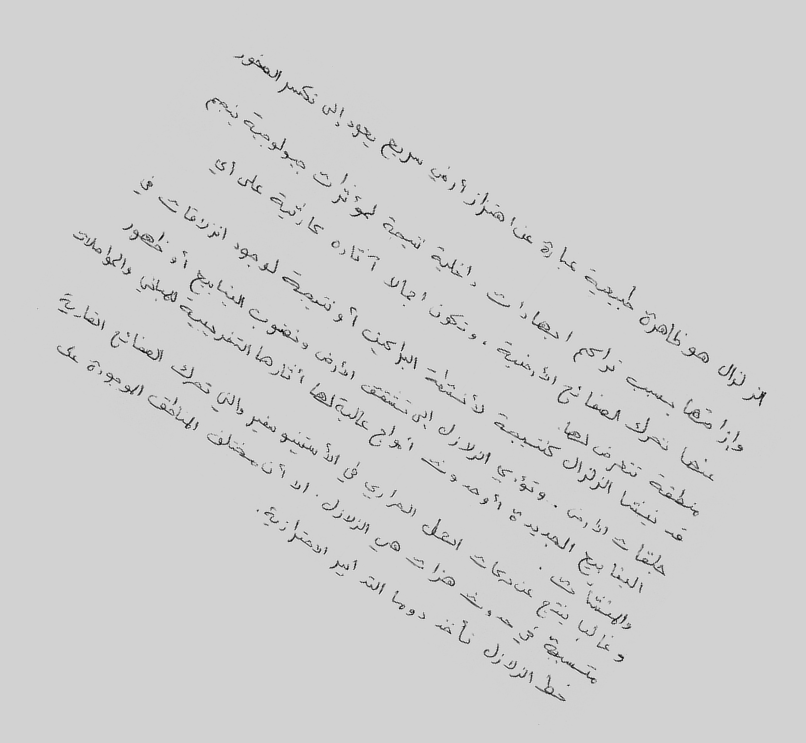 الزلزال هو ظاهرة طبيعية عبارة عن اهتزاز أرضي سريع يعود إلى تكسر الصخور
وإزاحتها بسبب تراكم اجهادات داخلية نتيجة لمؤثرات جيولوجية ينجم
عنها تحرك الصفائح الأرضية ، وتكون اجمالا آثاره كارثية على أي
منطقة تتعرض لها.
قد نيشا الزلزال كنتيجة لأنشطة البراكين أو نتيجة لوجود انزلاقات في
طبقات الأرض . وتؤدي الزلازل إلى تشقق الأرض ونضوب الينابيع أو ظهور
الينابيع الجديدة أو حدوث أمواج عالية لها أثارها التخريبية للمباني والمواصلات
والمنشآت .
وغالبا ينتج عن حركات الحمل الحراري في الأستينوسفير والتي تحرك الصفائح القارية
متسببة في حدوث هزات هي الزلازل . الا أن مختلف المناطق الموجودة على
خط الزلازل تأخذ دوما التدابير الاحترازية .